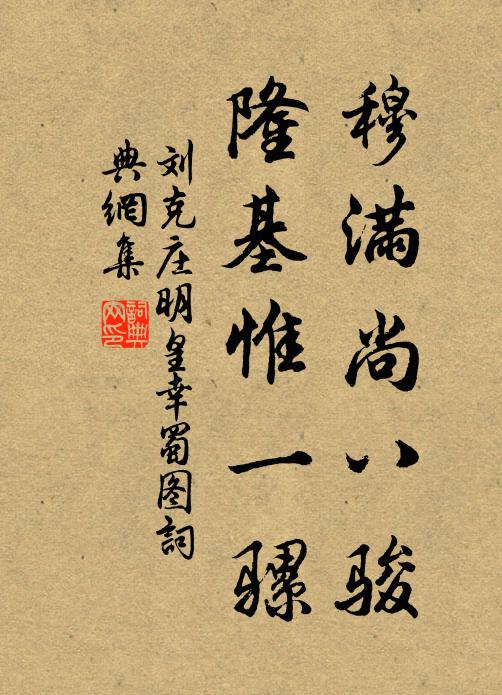 穆满尚八骏
隆基惟一骡
刘克庄明皇幸蜀图词
典網集
詞典
网印